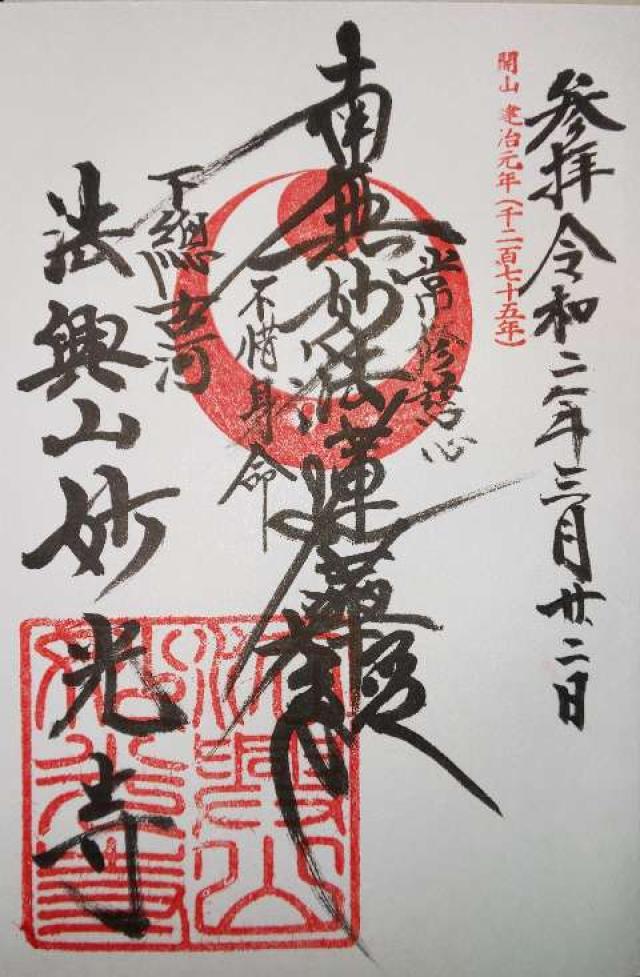 参拝 令和二年三月廿二日
開山 建治元年(千二百七十五年)
常修慈心
南無妙法蓮華經
不惜身命
下總古河
法興山妙光寺
法興山
妙光寺